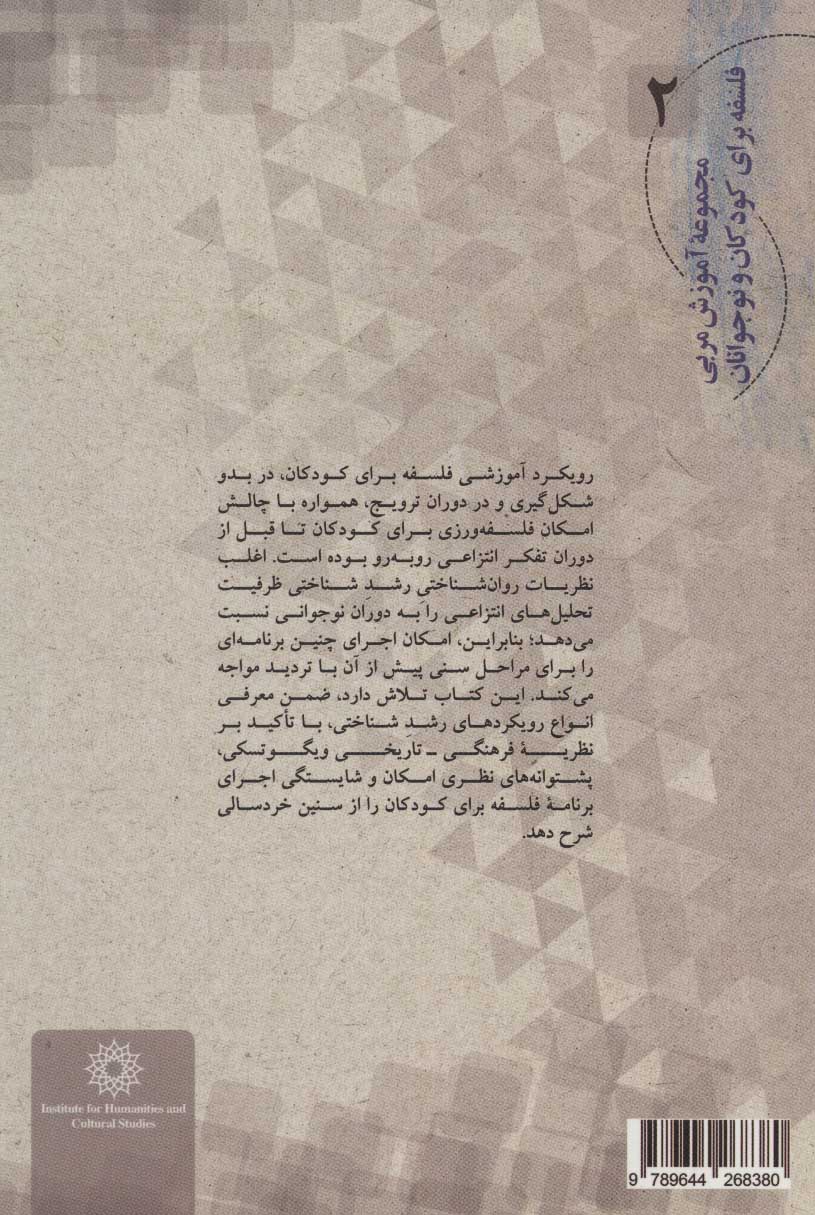 ۲
مجموعهٔ آموزش مربی
فلسفه برای کودکان و نوجوانان
رویکرد آموزشی فلسفه برای کودکان، در بدو
شکل‌گیری و در دوران ترویج، همواره با چالش
امکان فلسفه‌ورزی برای کودکان تا قبل از
دوران تفکر انتزاعی روبه‌رو بوده است. اغلب
نظریات روان‌شناختی رشدِ شناختی ظرفیت
تحلیل‌های انتزاعی را به دوران نوجوانی نسبت
می‌دهد؛ بنابراین، امکان اجرای چنین برنامه‌ای
را برای مراحل سنی پیش از آن با تردید مواجه
می‌کند. این کتاب تلاش دارد، ضمن معرفی
انواع رویکردهای رشدِ شناختی، با تأکید بر
نظریهٔ فرهنگی ـ تاریخی ویگوتسکی،
پشتوانه‌های نظری امکان و شایستگی اجرای
برنامهٔ فلسفه برای کودکان را از سنین خردسالی
شرح دهد.
Institute for Humanities and
Cultural Studies
9 789644 268380